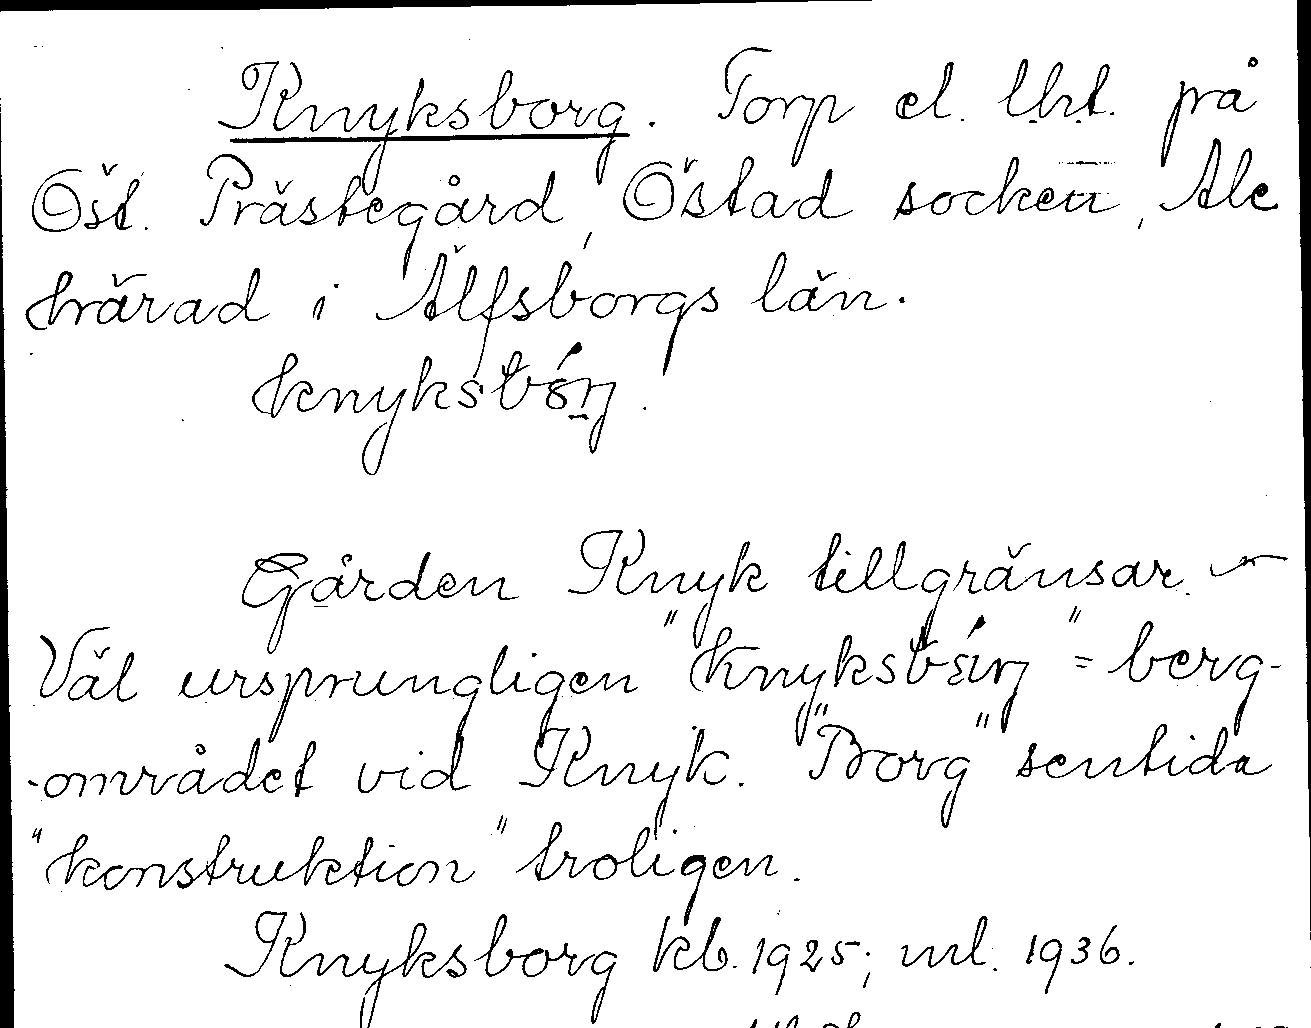 Knyksborg. Torp el. lht. på
Öst. Prästegård, Östad socken, Ale
härad i Älfsborgs län.
Gården Knyk tillgränsar. —
Väl ursprungligen " = berg-
-området vid Knyk. "Borg" sentida
"konstruktion" troligen.
Knyksborg kb. 1925; ml. 1936.